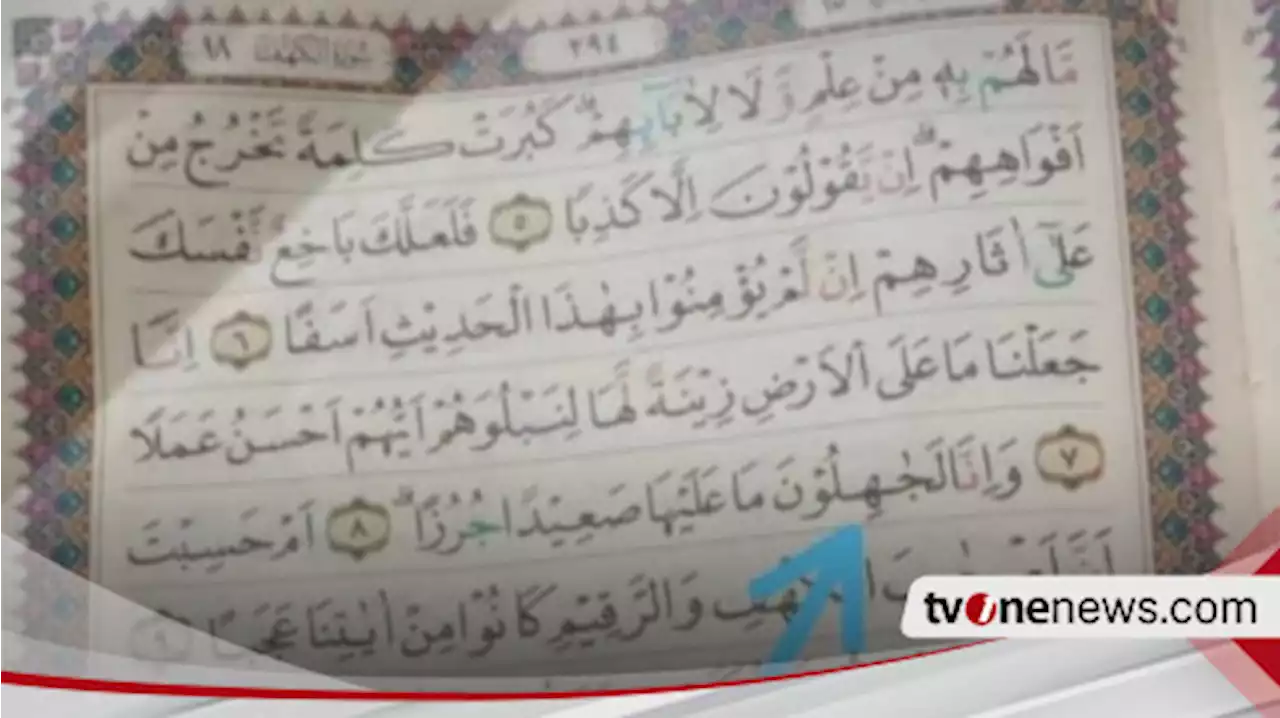 سُورَةُ الْكَهْفِ ١٨
٢٩٤
مَا لَهُمْ بِهٖ مِنْ عِلْمٍ وَّلَا لِاٰبَاۤىِٕهِمْۗ كَبُرَتْ كَلِمَةً تَخْرُجُ مِنْ
اَفْوَاهِهِمْۗ اِنْ يَّقُوْلُوْنَ اِلَّا كَذِبًا ٥ فَلَعَلَّكَ بَاخِعٌ نَّفْسَكَ
عَلٰٓى اٰثَارِهِمْ اِنْ لَّمْ يُؤْمِنُوْا بِهٰذَا الْحَدِيْثِ اَسَفًا ٦ اِنَّا
جَعَلْنَا مَا عَلَى الْاَرْضِ زِيْنَةً لَّهَا لِنَبْلُوَهُمْ اَيُّهُمْ اَحْسَنُ عَمَلًا
٧ وَاِنَّا لَجٰهِلُوْنَ مَا عَلَيْهَا صَعِيْدًا جُرُزًاۗ ٨ اَمْ حَسِبْتَ
وَالرَّقِيْمِ كَانُوْا مِنْ اٰيٰتِنَا عَجَبًا ٩
tvonenews.com